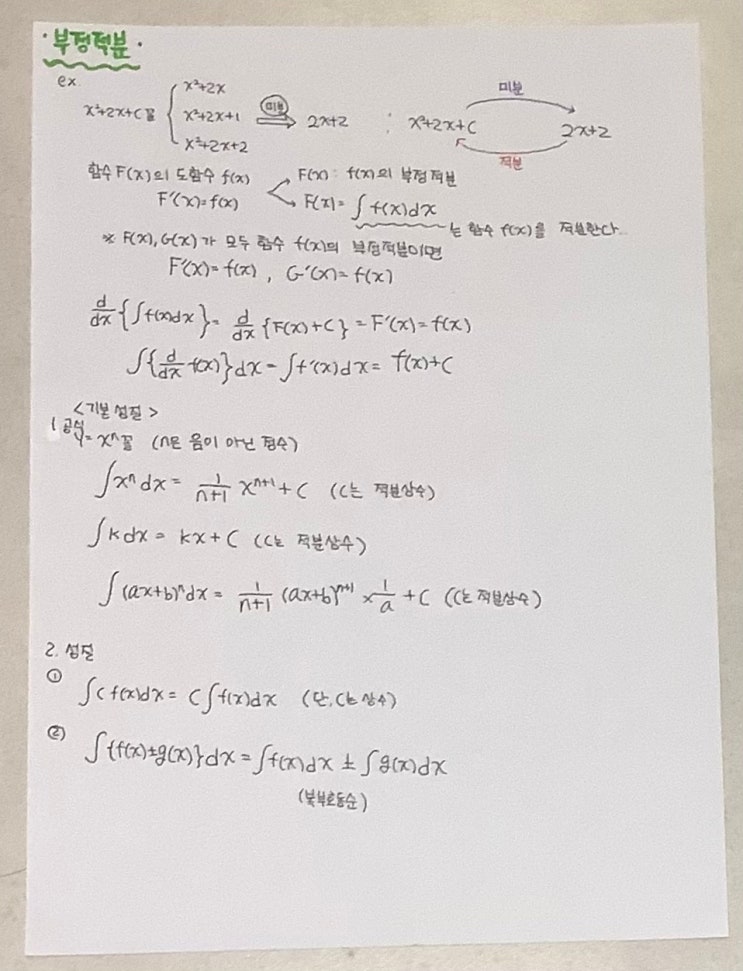 · 부정적분 ·
ex.
x²+2x+C꼴 { x²+2x
x²+2x+1
x²+2x+2
미분 ⇒ 2x+2 : x²+2x+C 미분 → 2x+2
적분 ←
함수 F(x)의 도함수 f(x) F(x) : f(x)의 부정적분
F'(x)=f(x) F(x)= ∫f(x)dx 는 함수 f(x)를 적분한다.
※ F(x), G(x)가 모두 함수 f(x)의 부정적분이면
F'(x)=f(x) , G'(x)=f(x)
d/dx {∫f(x)dx} = d/dx {F(x)+C} = F'(x)=f(x)
∫{d/dx f(x)}dx = ∫f'(x)dx = f(x)+C
<기본 성질>
1. 공식
y=xⁿ꼴 (n은 음이 아닌 정수)
∫xⁿdx = 1/(n+1) xⁿ⁺¹+C (C는 적분상수)
∫kdx = kx+C (C는 적분상수)
∫(ax+b)ⁿdx = 1/(n+1) (ax+b)ⁿ⁺¹ × 1/a + C (C는 적분상수)
2. 성질
① ∫Cf(x)dx = C∫f(x)dx (단, C는 상수)
② ∫{f(x)±g(x)}dx = ∫f(x)dx ± ∫g(x)dx
(복부호동순)